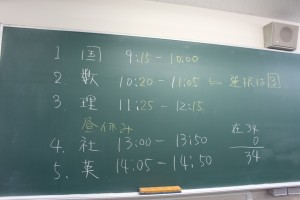 1 国 9:15-10:00
2 数 10:20-11:05
3. 理 11:25-12:15
昼休み
4. 社 13:00-13:50
5. 英 14:05-14:50
在 34
0
34